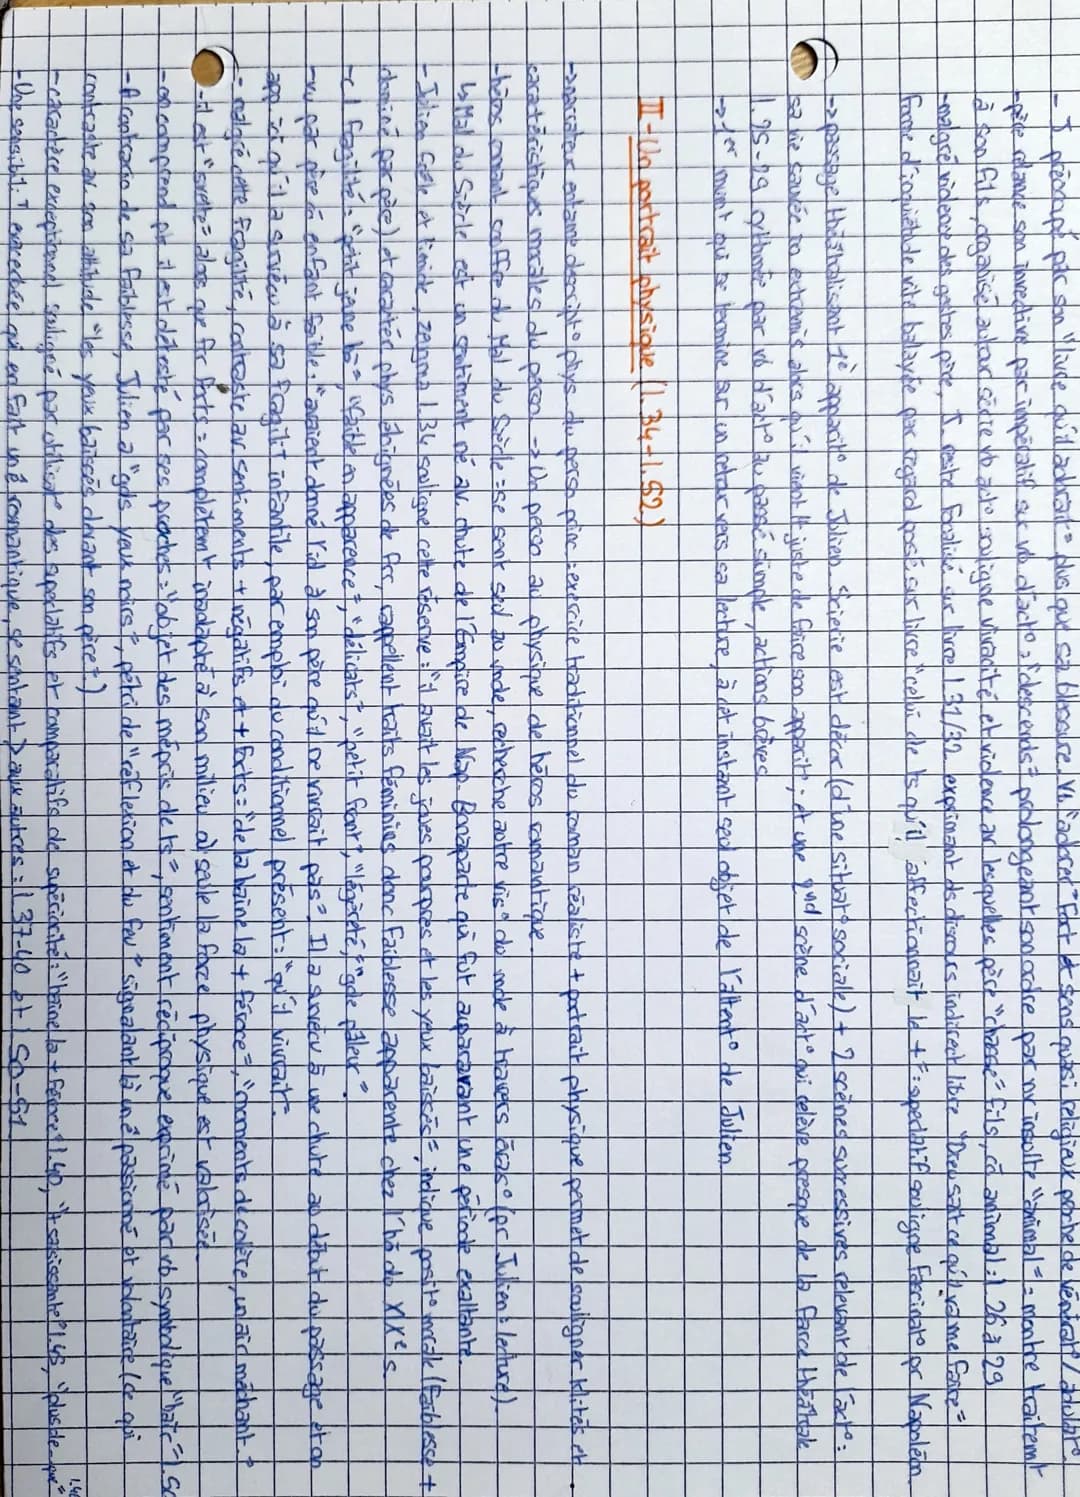 - J préoccupé par son "livre qu'il adorait" plus que sa blessure. Vb "adorer" fort et sens quasi religieux proche de vénérat° / adulat°
- père clame son invective par impératif sur vb d'act° : "descends" prolongeant son ordre par insulte "animal" = montre traitemt
à son fils, organisé autour série vb act° souligne vivacité et violence av lesquelles père "chasse" fils, cô animal : l.26 à 29
- malgré violence des gestes père, J. reste focalisé sur livre l.31/32 exprimant ds discours indirect libre "Dieu sait ce qu'il va me faire"
forme d'inquiétude vite balayée par regard posé sur livre "celui de ts qu'il affectionnait le +" : superlatif souligne fascinat° pr Napoléon
→ passage théâtralisant 1è apparit° de Julien. Scierie est décor (d'une situat° sociale) + 2 scènes successives relevant de l'act° :
sa vie sauvée in extremis alors qu'il vient juste de faire son apparit°; et une 2nd scène d'act° qui relève presque de la farce théâtrale
l.25-29 rythmée par vb d'act° au passé simple, actions brèves.
→ 1er mvmt qui se termine sur un retour vers sa lecture, à cet instant seul objet de l'attent° de Julien
II - Un portrait physique (l.34-l.52)
→ narrateur entame descript° phys du perso princ : exercice traditionnel du roman réaliste + portrait physique permet de souligner klités et
caractéristiques morales du perso → Un perso au physique de héros romantique.
- héros romant souffre du Mal du Siècle : se sent seul au mde, recherche autre vis° du mde à travers évas° (pr Julien : lecture)
↳ Mal du Siècle est un sentiment né av. chute de l'Empire de Nap. Bonaparte qui fut auparavant une période exaltante.
- Julien Gêné et timide, zeugma l.34 souligne cette réserve : "il avait les joues pourpres et les yeux baissés", indique posit° morale (faiblesse +
dominé par père) et caractér phys éloignées de frr, rappellent traits féminins donc faiblesse apparente chez l'ho du XIXe s.
- cl fragilité : "petit jeune ho", "faible en apparence", "délicats", "petit front", "légèreté", "gde pâleur"
- vu par père cô enfant faible : "avaient donné l'id à son père qu'il ne vivrait pas". Il a survécu à une chute au début du passage et on
app. ici qu'il a survécu à sa fragilit T infantile, par emploi du conditionnel présent : "qu'il vivrait".
- malgré cette fragilité, contraste av. sentiments + négatifs et + forts : "de la haine la + féroce", "moments de colère, un air méchant."
- il est "svelte" alors que frr forts : complètemt inadapté à son milieu où seule la force physique est valorisée.
- on comprend plr il est détesté par ses proches : "objet des mépris de ts", sentiment réciproque exprimé par vb symbolique "haïr" l.50
- A contrario de sa faiblesse, Julien a "gds yeux noirs", pétri de "réflexion et du feu" signalant là un ê passionné et volontaire (ce qui
contraste av son attitude "les yeux baissés devant son père".)
- caractère exceptionnel souligné par utilisat° des superlatifs et comparatifs de supériorité : "haine la + féroce" l.40, "+ saisissante" l.45, "plus de...que" l.46
- Une sensibilT exacerbée qui en fait un ê romantique, se sentant > aux autres : l.37-40 et l.50-51